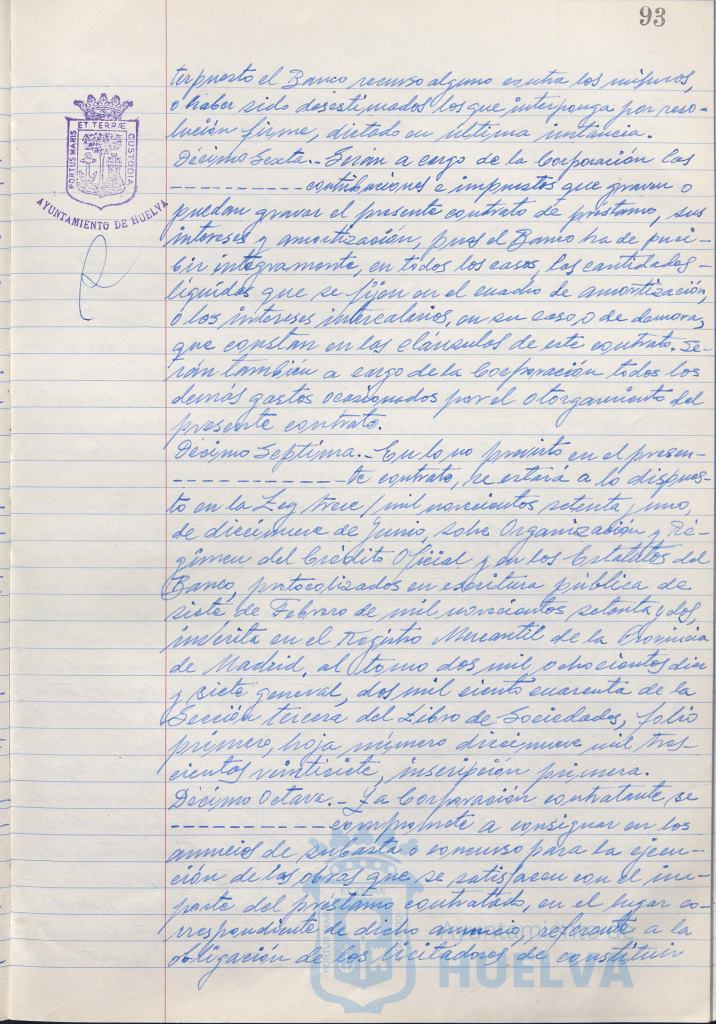 93
terpuesto el Banco recurso alguno contra los mismos,
o haber sido desestimados los que interponga por reso-
lución firme, dictado en última instancia.
Décimo Sexta.- Serán a cargo de la Corporación las
------------ contribuciones e impuestos que graven o
puedan gravar el presente contrato de préstamo, sus
intereses y amortización, pues el Banco ha de perci-
bir íntegramente, en todos los casos, las cantidades-
líquidas que se fijen en el cuadro de amortización,
o los intereses intercalarios, en su caso, o de demora,
que constan en las cláusulas de este contrato. Se-
rán también a cargo de la Corporación todos los
demás gastos ocasionados por el otorgamiento del
presente contrato.
Décimo Septima.- En lo no previsto en el presen-
------------ te contrato, se estará a lo dispues-
to en la Ley trece/mil novecientos setenta y uno,
de diecinueve de Junio, sobre Organización y Ré-
gimen del Crédito Oficial y en los Estatutos del
Banco, protocolizados en escritura pública de
siete de Febrero de mil novecientos setenta y dos,
inscrita en el Registro Mercantil de la Provincia
de Madrid, al tomo dos mil ochocientos diez
y siete general, dos mil ciento cuarenta de la
Sección tercera del Libro de Sociedades, folio
primero, hoja número diecinueve mil tres-
cientos veintisiete, inscripción primera.
Décimo Octava.- La Corporación contratante, se
------------ compromete a consignar en los
anuncios de subasta o concurso para la ejecu-
ción de las obras que se satisfacen con el im-
porte del préstamo contratado, en el lugar co-
rrespondiente de dicho anuncio, referente a la
obligación de los licitadores de constituir
PORTUS MARIS ET TERRÆ CUSTODIA
AYUNTAMIENTO DE HUELVA
Ayuntamiento de
HUELVA